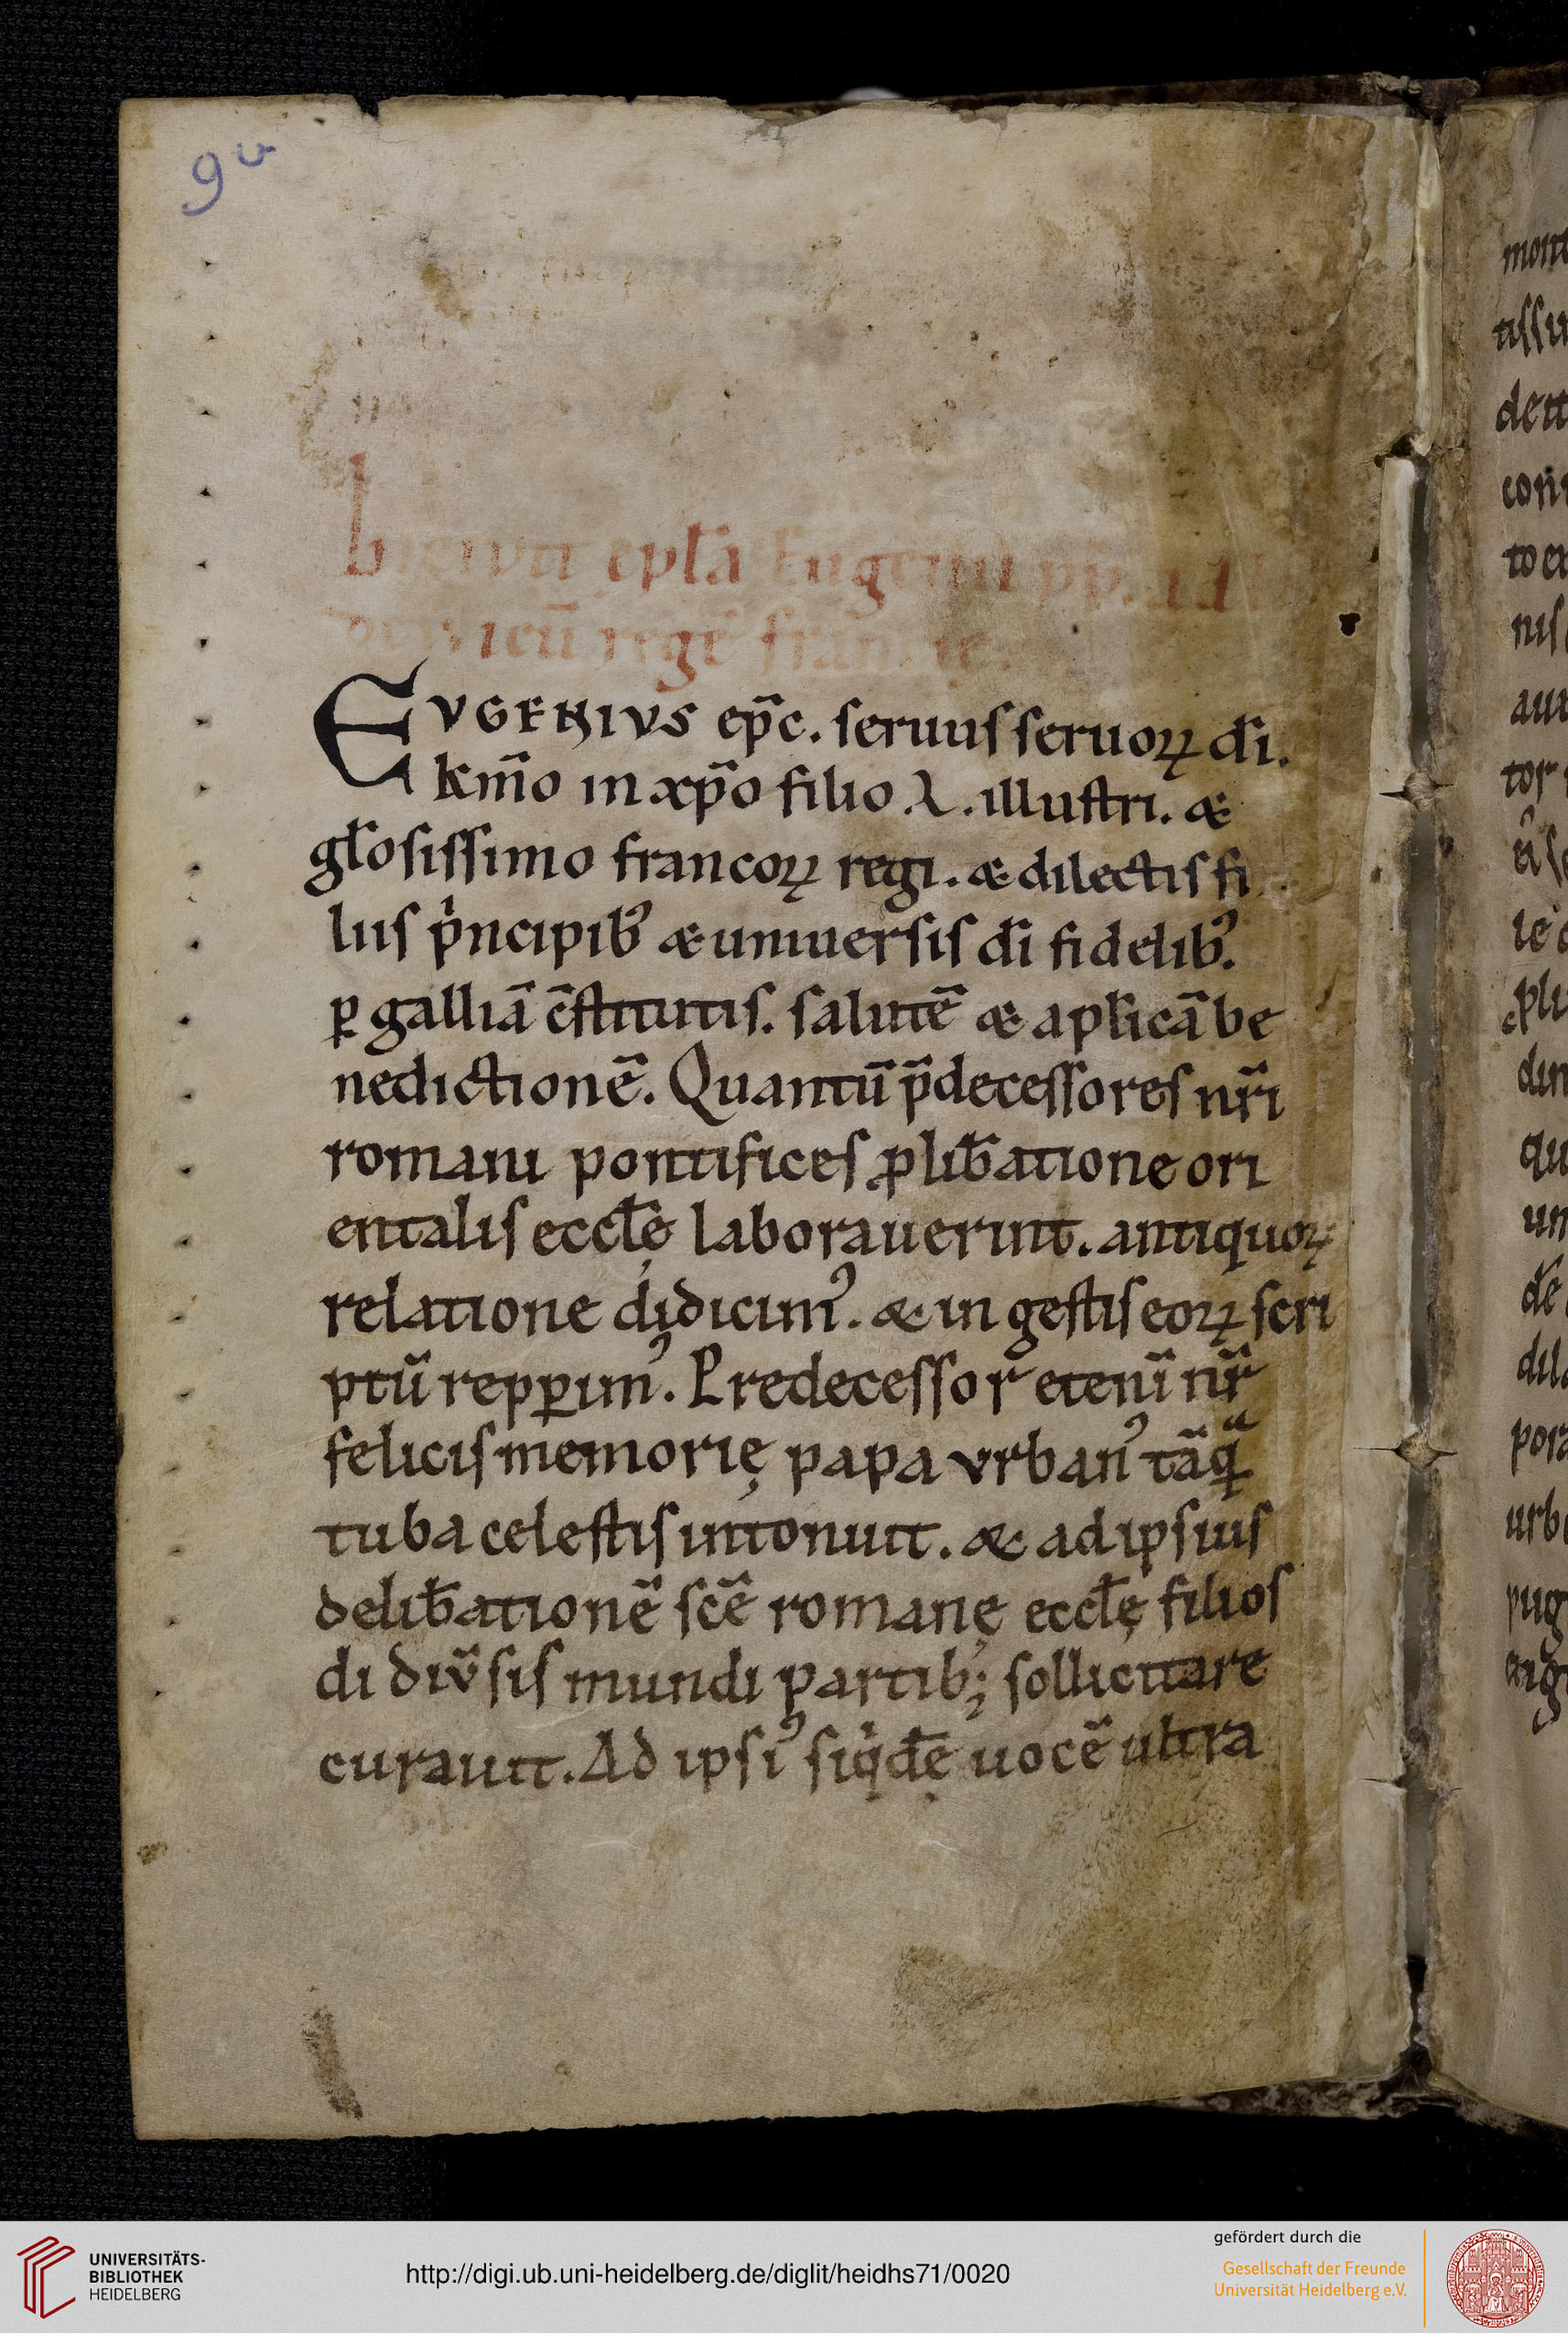 9v
Incipit epl̄a Eugenii pp̄. ad
regē
EVGENIVS ep̄c. ſeruuſ ſeruoꝝ dī.
Km̄o in xp̄o filio .λ. illuſtri. &
gl̄oſiſſimo francoꝝ regi. & dilectiſ fi
liiſ pͥncipib᾽ & uniuerſiſ dī fidelib᾽.
ꝑ galliā c̄ſtitutiſ. ſalutē & apl̄icā be
nedictionē. Quantū p̄deceſſoreſ nr̄i
romani pontificeſ ꝓ lib̄atione ori
entaliſ eccl̄ę laborauerint. antiquoꝝ
relatione didicim᾽. & in geſtiſ eoꝝ ſcri
ptū repꝑim᾽. Predeceſſor etenī nr̄
feliciſ memorię papa vrban᾽ tāqͣ
tuba celeſtiſ intonuit. & ad ipſiuſ
delib̄ationē ſcē romanę eccl̄ę filioſ
di diūſiſ mundi partib; ſollicitare
curauit. Ad ipſi᾽ ſiqͥdē uocē ultra
mont
tiſſi
dett
con
to et
niſ
aux
tor
le
din
qu
un
dē
dil
por
urb
pug
UNIVERSITÄTS-
BIBLIOTHEK
HEIDELBERG
http://digi.ub.uni-heidelberg.de/diglit/heidhs71/0020
gefördert durch die
Gesellschaft der Freunde
Universität Heidelberg e.V.